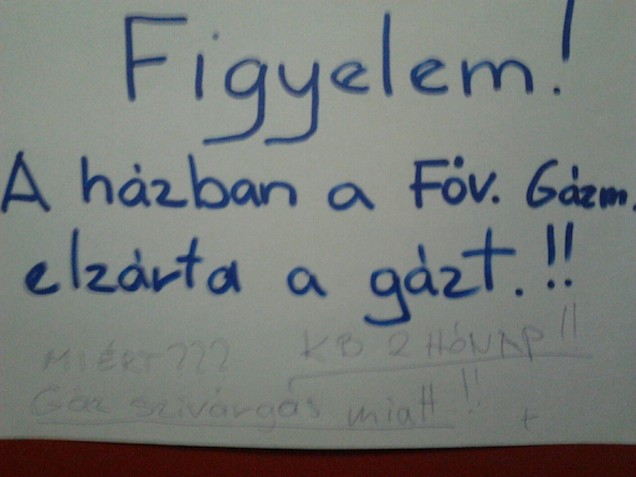 Figyelem!
A házban a Föv. Gázm.
elzárta a gázt.!!
MIÉRT??? KB 2 HÓNAP!!
Gáz szivárgás miatt!! +